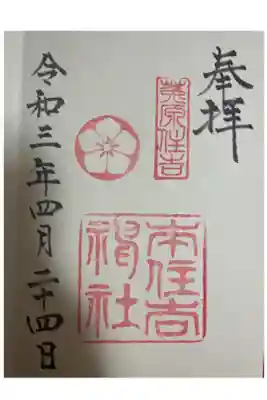 奉拝
莵原住吉
本住吉
神社
令和三年四月二十四日